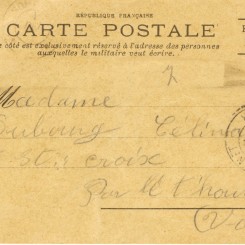 RÉPUBLIQUE FRANÇAISE
CARTE POSTALE
Ce côté est exclusivement réservé à l'adresse des personnes
auxquelles le militaire veut écrire.
Madame
Dubourg Célina
Ste croix
Par